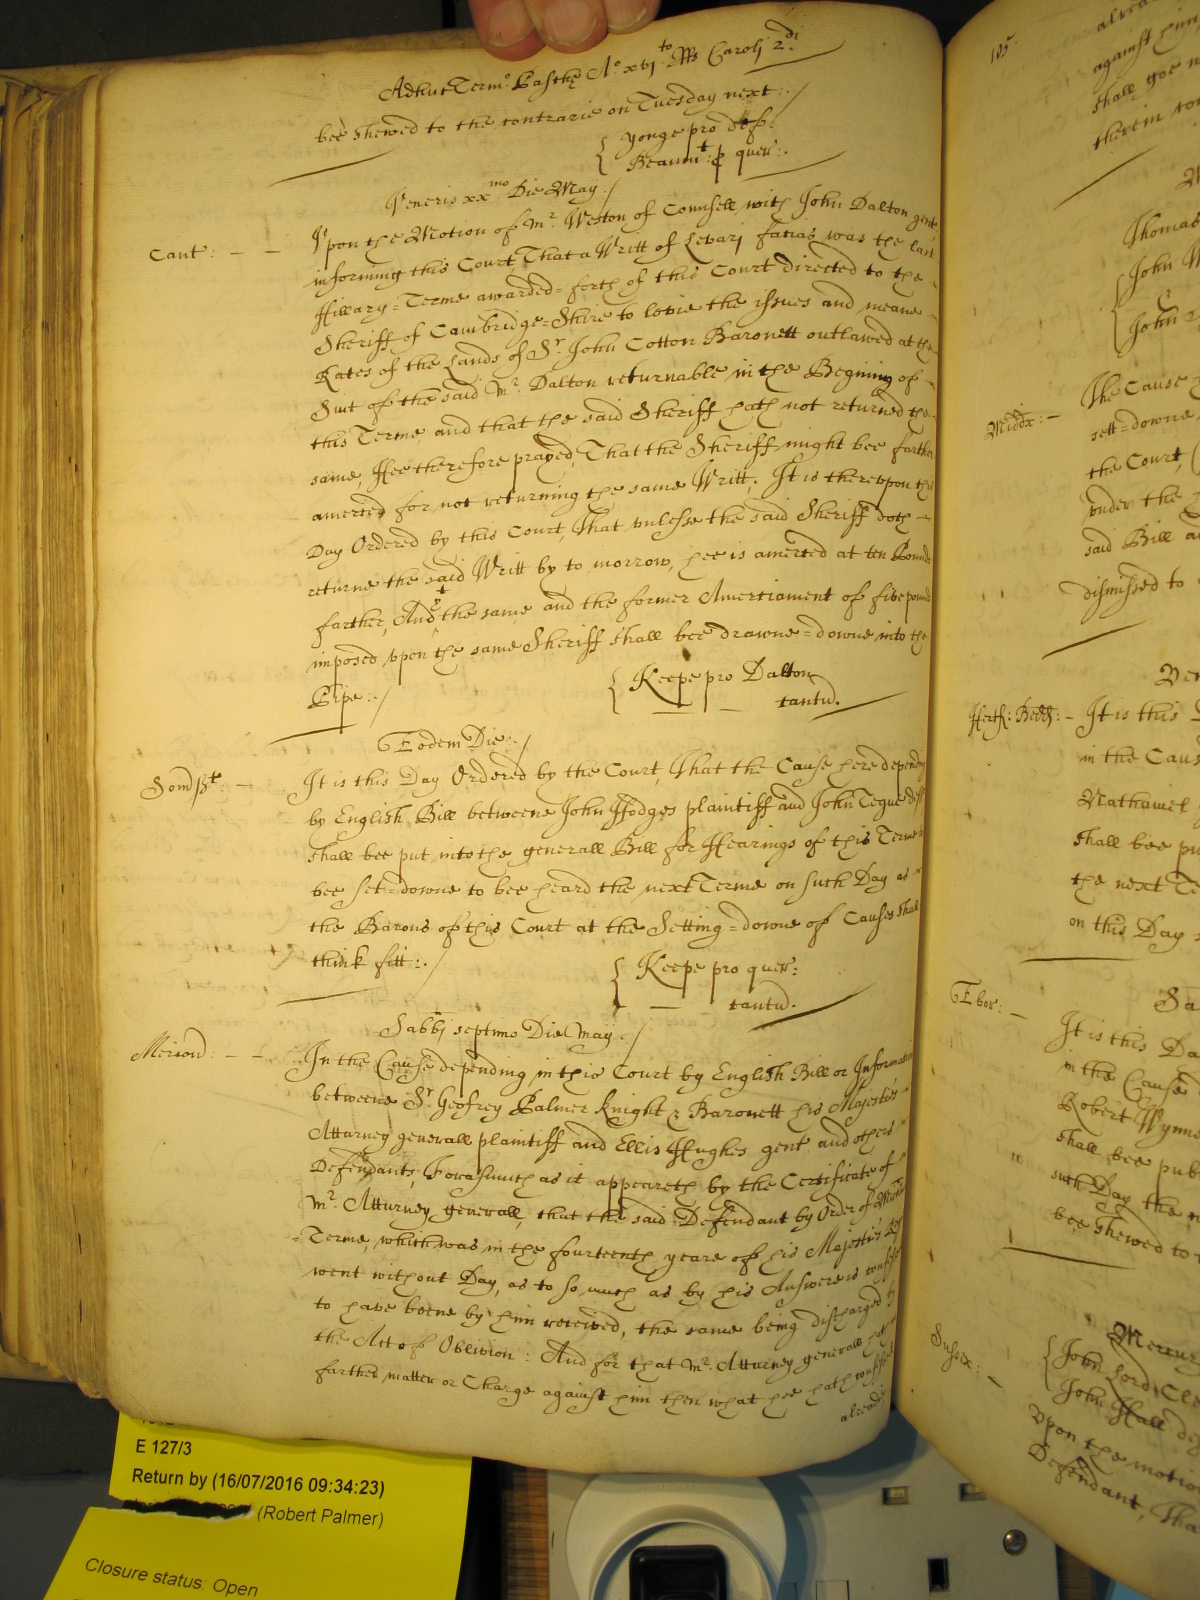 Adhuc Termo Pasche Ao xvjto RRs Caroli 2di
bee shewed to the contrarie on Tuesday next:./
Yonge pro def:
Beaumt: p quer:.
Veneris xxmo Die May./
Cant: - - Vpon the Motion of Mr. Weston of Counsell with John Dalton gent
informing this Court, That a Writt of Levarj facias was the last
Hillary=Terme awarded=forth of this Court directed to the
Sheriff of Cambridge=Shire to levie the issues and meane
Rates of the Lands of Sr. John Cotton Baronett outlawed at the
Suit of the said Mr. Dalton returnable in the Begining of
this Terme, and that the said Sheriff hath not returned the
same, Hee therefore prayed, That the Sheriff might bee farther
amerced for not returning the same Writt; It is therevpon this
Day Ordered by this Court, That vnlesse the said Sheriff doth
returne the said Writt by to morrow, hee is amerced at ten Pounds
farther, And yt the same and the former Amerciament of five pounds
imposed vpon the same Sheriff shall bee drawne=downe into the
Pipe:./
Keepe pro Dalton
tantu.
Eodem Die:./
Somsst: - It is this Day Ordered by the Court, That the Cause here depending
by English Bill betweene John Hodges plaintiff and John Tegue deft
shall bee put into the generall Bill for Hearings of this Terme to
bee set=downe to bee heard the next Terme on such Day as
the Barons of this Court at the Setting=downe of Causes shall
think fitt:./
Keepe pro quer:
tantu.
Sabbj septimo Die May./
Meriond: - - In the Cause depending in this Court by English Bill or Information
betweene Sr Geofrey Palmer Knight & Baronett his Majesties
Atturney generall plaintiff and Ellis Hughes gent and others
Defendants, Forasmuch as it appeareth by the Certificate of
Mr. Atturney generall, that the said Defendant by Order of
=Terme, which was in the fourteenth yeare of his Majesties
went without Day, as to so much as by his Answere is confest
to have beene by him received, the same being discharged by
the Act of Oblivion: And for that Mr. Atturney generall hath
farther matter or Charge against him then what hee hath confest
already
105.
alrea
against him
shall goe
therein
Thomas
John W
John
Middx: - The Cause
sett=downe
the Court,
vnder the
said Bill
dismissed to
Ven
Hertf: Bedd: - It is this
in the Caus
Nathaniel
shall bee pu
the next Te
on this Day
Sa
Ebor: - It is this Da
in the Cause
Robert Wynne
shall bee put
such Day the
bee shewed to
Mercur
Sussex: - John Lord
John Hall de
Vpon the motio
Defendant, Tha
E 127/3
Return by (16/07/2016 09:34:23)
(Robert Palmer)
Closure status: Open